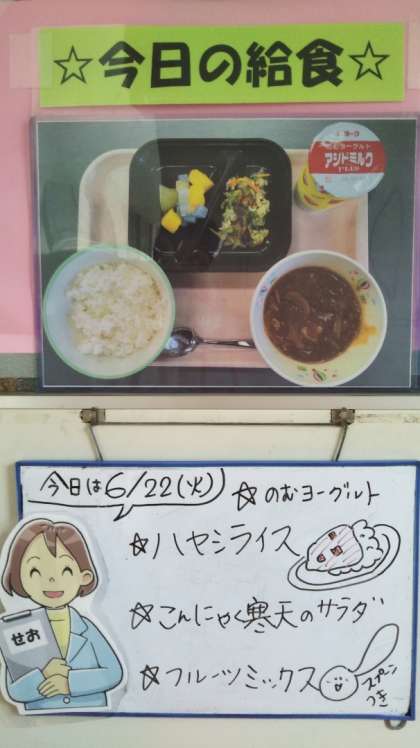 ☆今日の給食☆
ヨーク
のむヨーグルト
アシドミルク
PLUS
今日は6/22(火)
☆のむヨーグルト
☆ハヤシライス
☆こんにゃく寒天のサラダ
☆フルーツミックス
スプーン
つき
せお